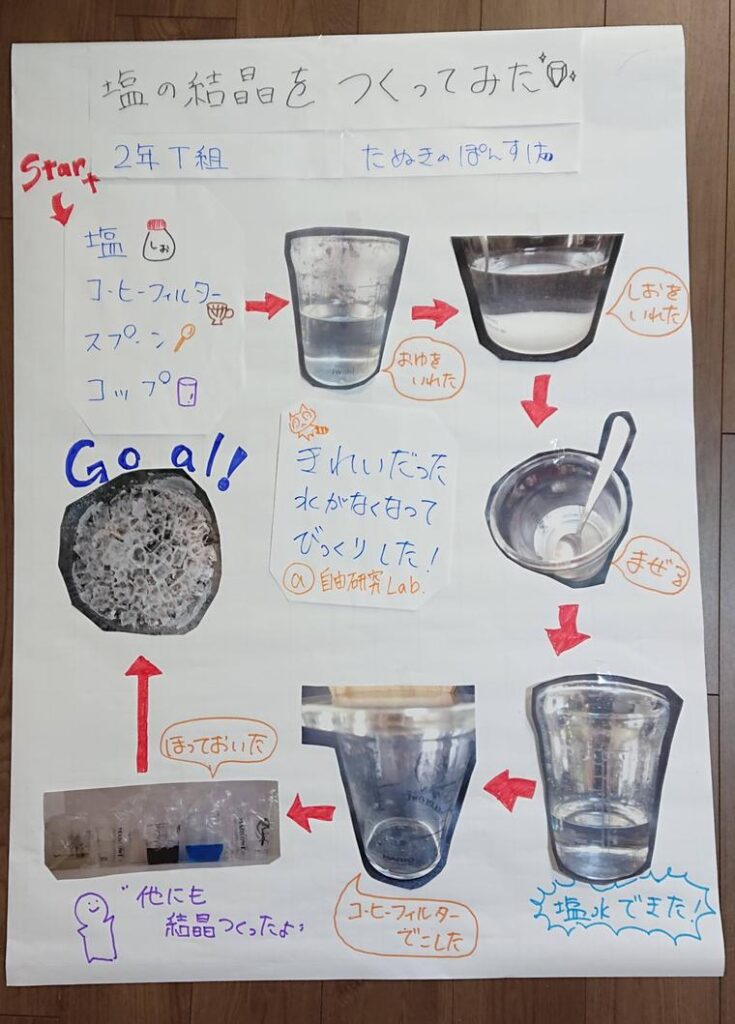 塩の結晶を つくってみた
2年T組 たぬきのぽんすけ
Start
塩
しお
コーヒーフィルター
スプーン
コップ
おゆを
いれた
しおを
いれた
まぜる
塩水できた!
コーヒーフィルター
でこした
ほっておいた
他にも
結晶つくったよ
Goal!
きれいだった
水がなくなって
びっくりした!
@自由研究Lab.